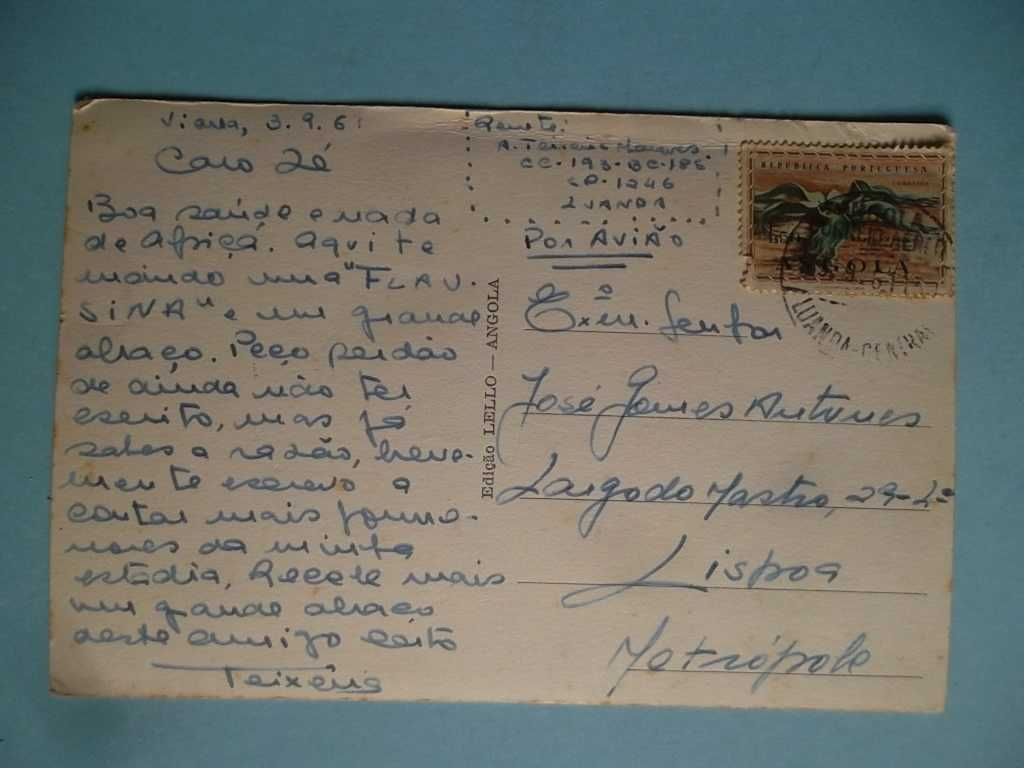 Viana, 3.9.61
Caro Zé
Boa saúde e nada
de Africa. Aqui te
mando uma "FLAU-
SINA" e um grande
abraço. Peço perdão
de ainda não ter
escrito, mas já
sabes a razão, breve-
mente escrevo a
contar mais pormo-
nores da minha
estadia, Recebe mais
um grande abraço
deste amigo certo
Teixeira
Remete:
A. Teixeira
CC-193-BC-185
SP-1246
LUANDA
POR AVIÃO
Edição LELLO — ANGOLA
REPÚBLICA PORTUGUESA
CORREIOS
ANGOLA
LUANDA-CENTRAL
Exmº. Senhor
José Gomes Antunes
Largo do Mastro, 29-2º
Lisboa
Metrópole